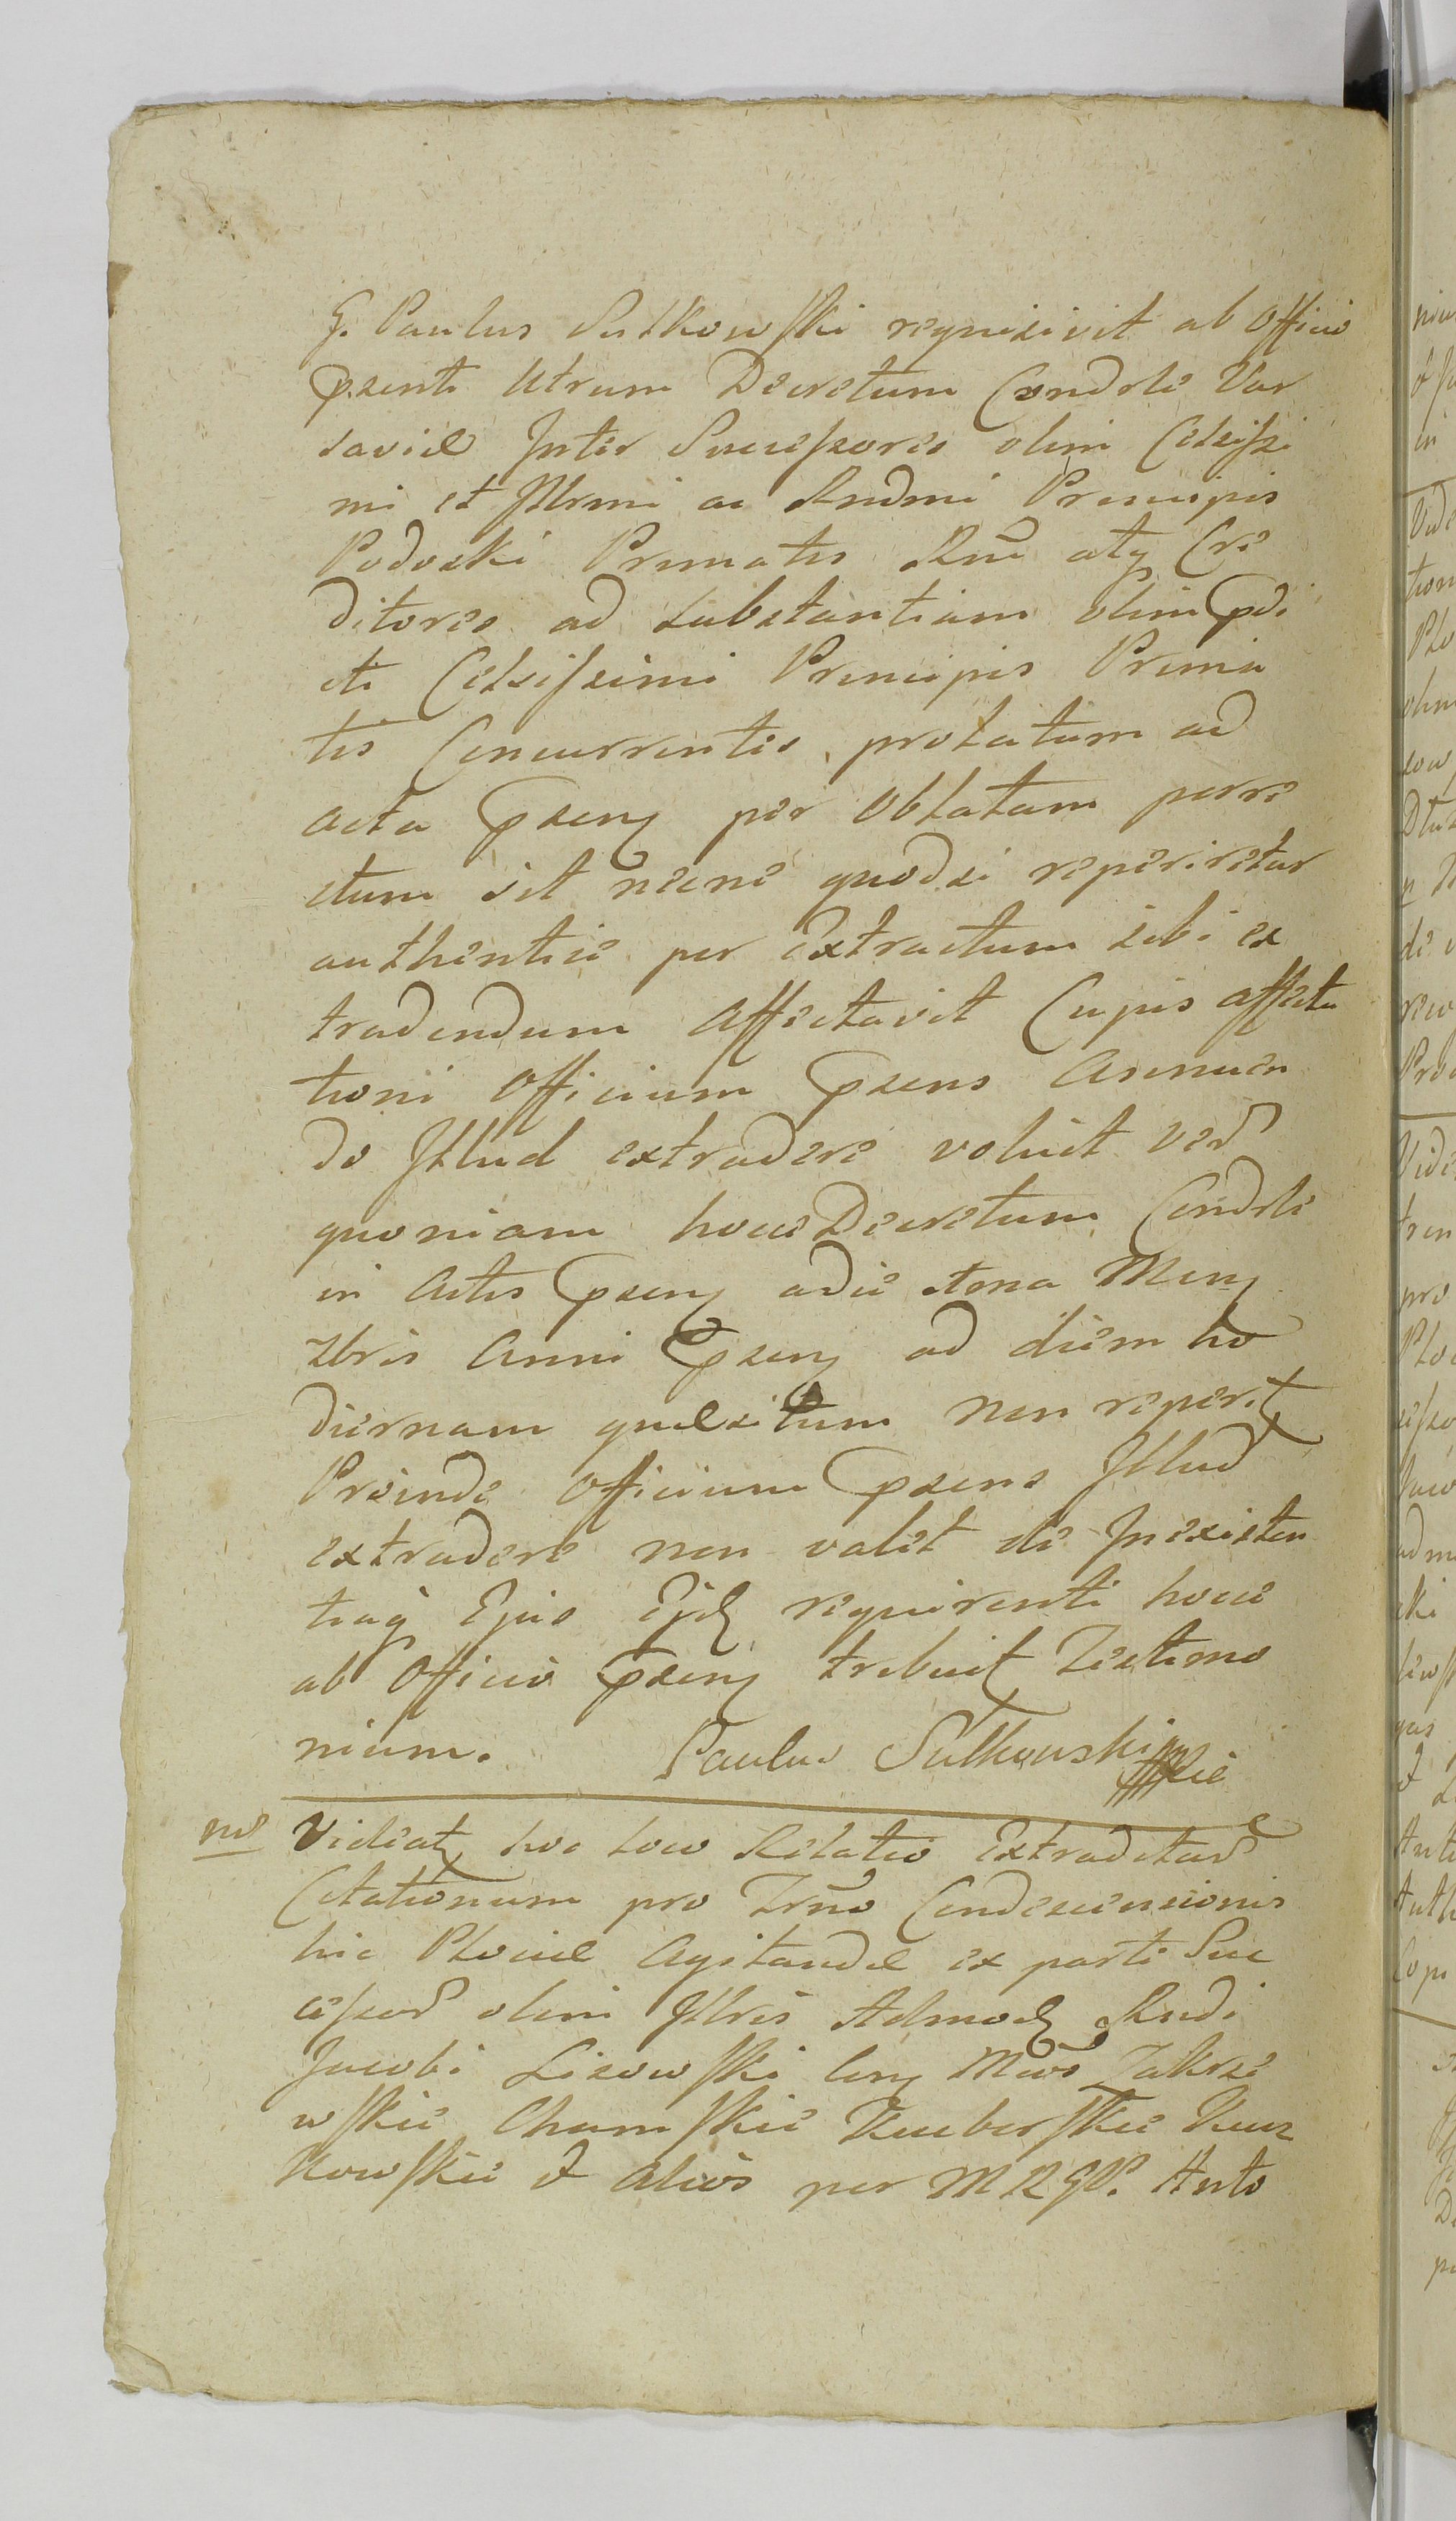 G. Paulus Sutkowski requisivit ab Officio
pzenti Utrum Decretum Condrle Var
saviæ Inter Successores olim Celsissi
mi et Illrmi ac Rndmi Principis
Podoski Primatis Rni atq Cre
ditores ad substantiam olim pdi
cti Celsissimi Principis Prima
tis Concurrentes prolatum ad
acta pzens per Oblatam porre
ctum sit necne quodsi reperiretur
authentice per Extractum sibi ex
tradendum Affectavit Cujus affecta
tioni Officium pzens Annuen
do Illud extradere voluit Ver
quoniam hocce Decretum Condrle
in Actis pzens a die Mens
Xbris Anni pzens ad diem ho
diernam quæsitum non reperit
Proinde Officium pzens Illud
extradere non valet de Inexisten
tiaq Ejus Ejd requirenti hocce
ab Officio pzens tribuit Testimo
nium. Paulus Sutkowski
Videat hoc loco Relatio Extraditar
Citationum pro Trno Condescensionis
hic Plociæ Agitandæ ex parte Suc
cessor olim Illris Admod Rndi
Jacobi Lisowski Cons Zakrze
wskie Chamskie
kowskie et Alios per M R GD. Anto